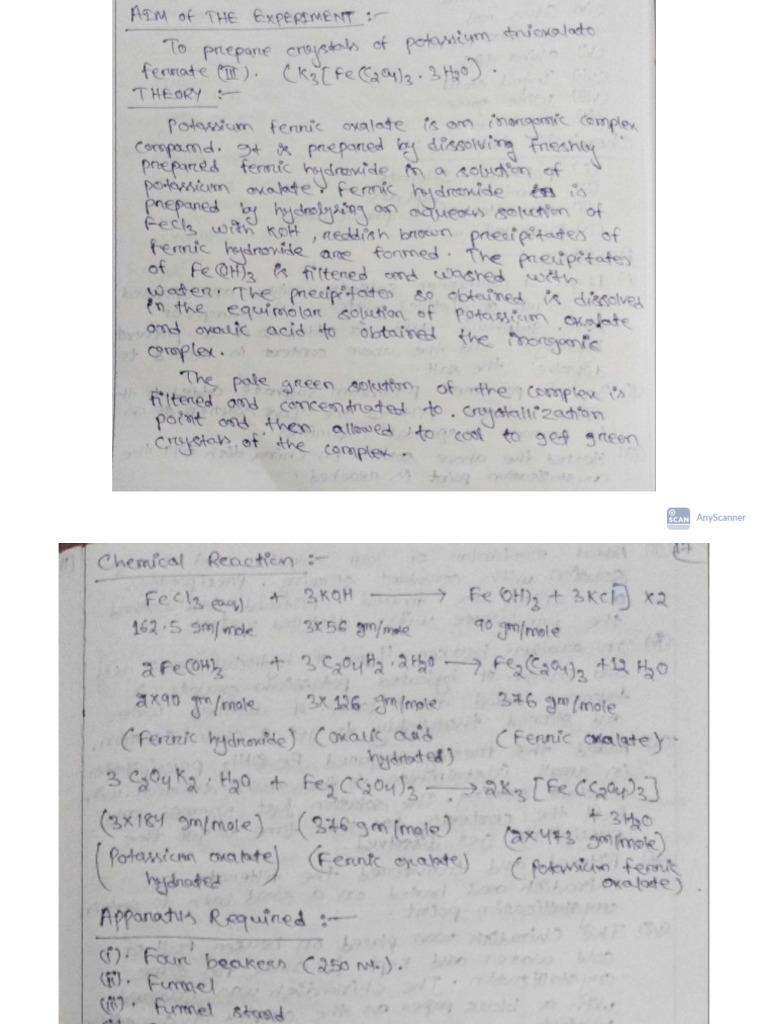 AIM OF THE EXPERIMENT :-
To prepare crystals of potassium trioxalato
ferrate (III). (K3[Fe(C2O4)3 . 3H2O) .
THEORY :-
Potassium ferric oxalate is an inorganic complex
compound. It is prepared by dissolving freshly
prepared ferric hydroxide in a solution of
potassium oxalate. Ferric hydroxide is
prepared by hydrolysing an aqueous solution of
FeCl3 with KOH, reddish brown precipitates of
ferric hydroxide are formed. The precipitates
of Fe(OH)3 is filtered and washed with
water. The precipitates so obtained is dissolved
in the equimolar solution of potassium oxalate
and oxalic acid to obtained the inorganic
complex.
The pale green solution of the complex is
filtered and concentrated to crystallization
point and then allowed to cool to get green
crystals of the complex.
SCAN AnyScanner
Chemical Reaction :-
FeCl3 (aq) + 3KOH → Fe(OH)3 + 3KCl] x2
162.5 gm/mole 3x56 gm/mole 90 gm/mole
2Fe(OH)3 + 3 C2O4H2.2H2O → Fe2(C2O4)3 + 12 H2O
2x90 gm/mole 3x126 gm/mole 376 gm/mole
(Ferric hydroxide) (oxalic acid (Ferric oxalate).
hydrated)
3 C2O4K2.H2O + Fe2(C2O4)3 → 2K3[Fe(C2O4)3]
+ 3H2O
(3x184 gm/mole) (376 gm/mole) (2x473 gm/mole)
(Potassium oxalate) (Ferric oxalate) (Potassium ferric
hydrated oxalate)
Apparatus Required :-
(i). Four beakers (250 ml.).
(ii). Funnel
(iii). Funnel stand